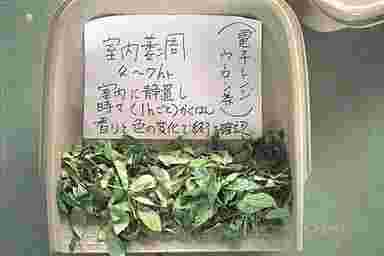 室内萎凋
4〜7hr
室内に静置し
時々(1hrごと)かくはん
香りと色の変化で終了確認
(電子レンジ
ウーロン茶)